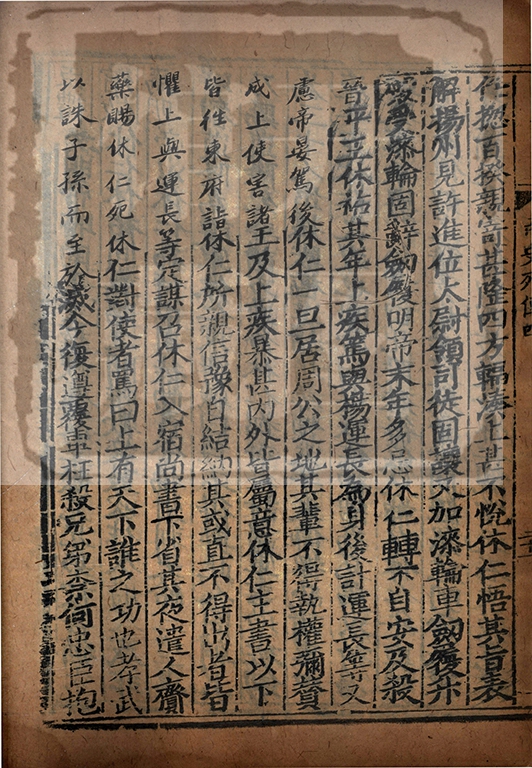 任揔百揆親寄甚隆四方輻湊上甚不恱休仁悟其旨表
解揚州見許進位太尉領司徒固讓又加漆輪車劒履升
殿受漆輪固辭劒履明帝末年多忌休仁轉不自安及殺
晉平王休祐其年上疾篤與楊運長為身後計運長等又
慮帝晏駕後休仁一旦居周公之地其輩不得執權彌贊
成上使害諸王及上疾暴甚内外皆屬意休仁主書以下
皆徃東府詣休仁所親信豫自結納其或直不得出者皆
懼上與運長等定謀召休仁入宿尚書下省其夜遣人齎
藥賜休仁死休仁對使者罵曰上有天下誰之功也孝武
以誅子孫而至於滅今復遵覆車枉殺兄弟柰何忠臣抱